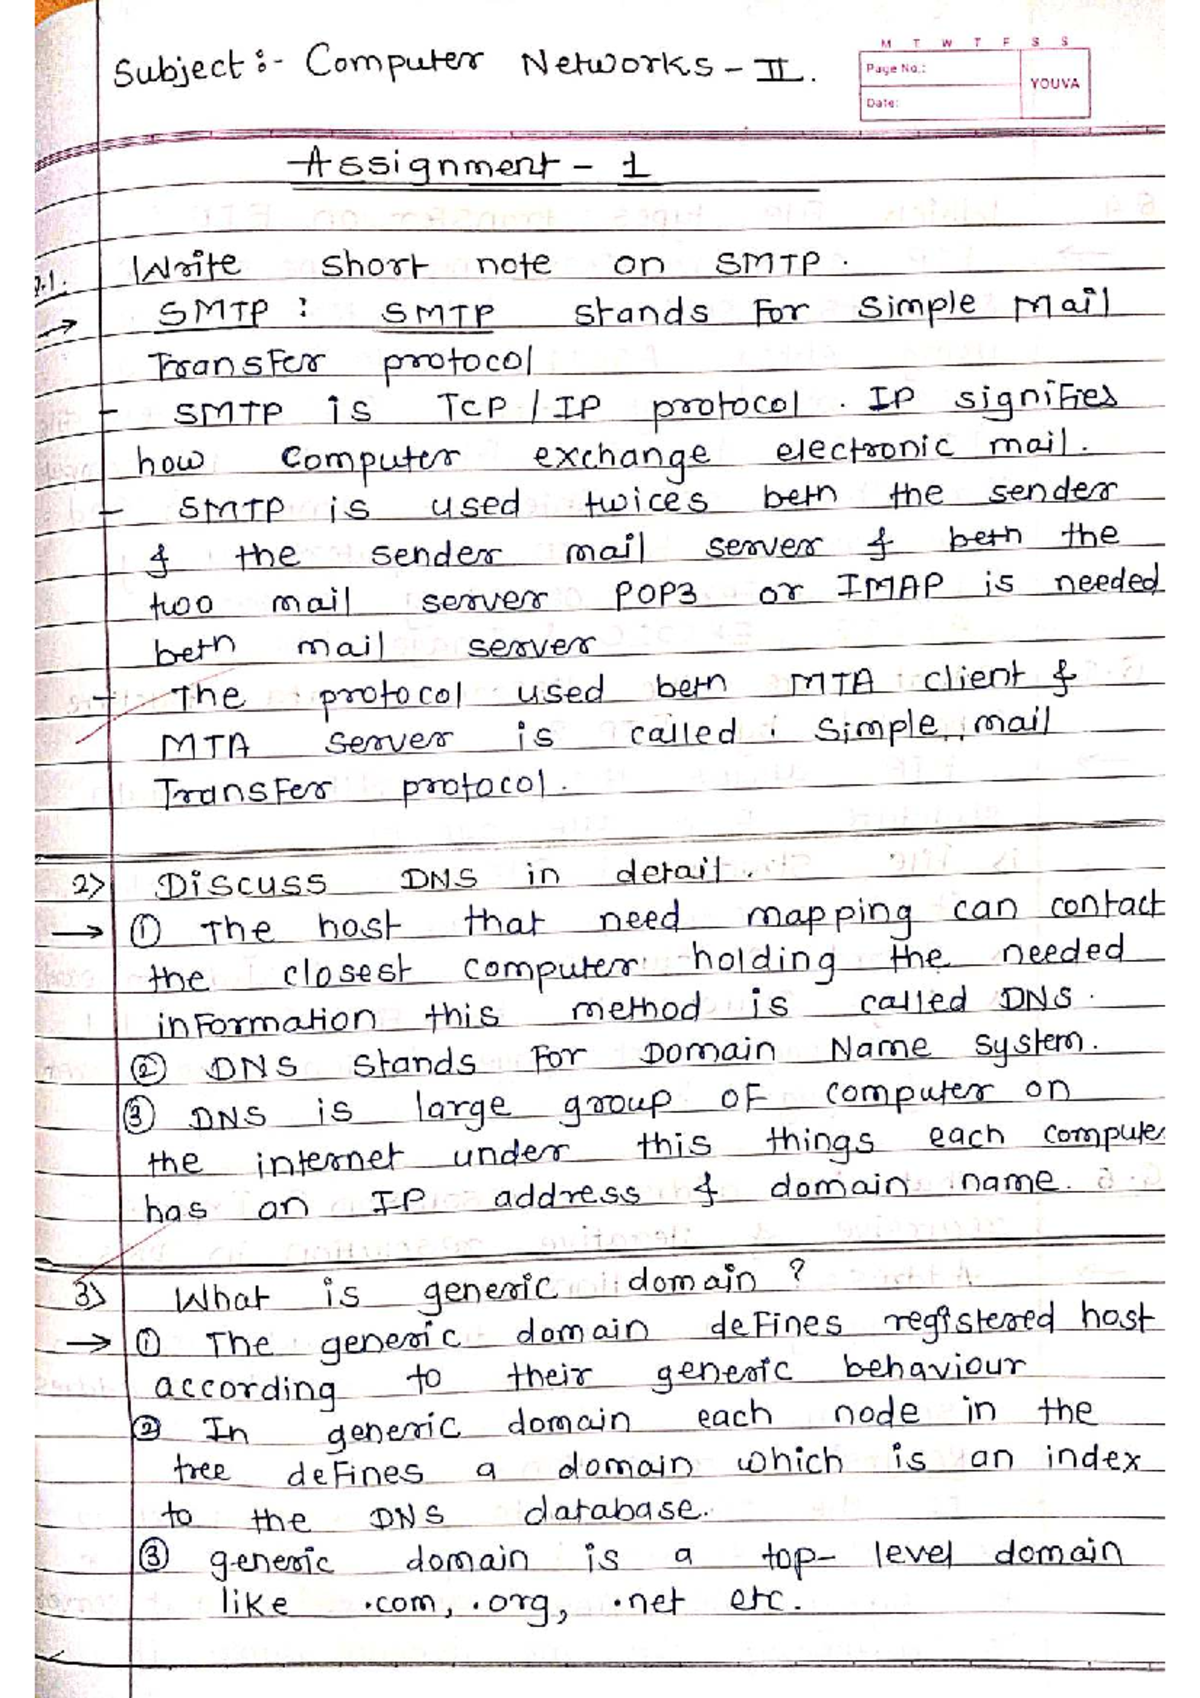 Subject :- Computer Networks - II.
M T W T F S S
Page No.:
YOUVA
Date:
Assignment - 1
Write short note on SMTP.
→ SMTP : SMTP stands For Simple Mail
Transfer protocol
- SMTP is TCP / IP protocol. IP signifies
how Computer exchange electronic mail.
- SMTP is used twices betn the sender
& the sender mail server & betn the
two mail server POP3 or IMAP is needed
betn mail server
- The protocol used betn MTA client &
MTA server is called . Simple mail
Transfer protocol.
2) Discuss DNS in detail.
→ ① The host that need mapping can contact
the closest computer holding the needed
information this method is called DNS.
② DNS stands For Domain Name System.
③ DNS is large group OF computer on
the internet under this things each compute
has an IP address & domain name.
3) What is generic domain ?
→ ① The generic domain defines registered host
according to their generic behaviour
② In generic domain each node in the
tree defines a domain which is an index
to the DNS database.
③ generic domain is a top- level domain
like .com, .org, .net etc.